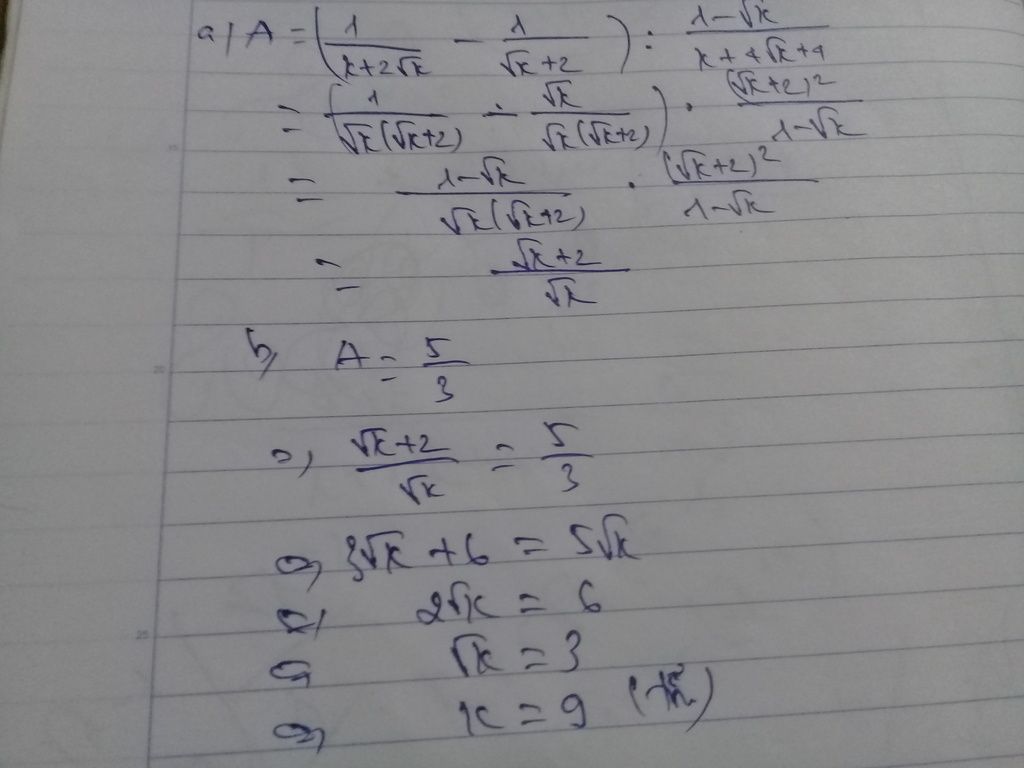 a, A = (1/(x+2√x) - 1/(√x+2)) : (1-√x)/(x+4√x+4)
= (1/(√x(√x+2)) - √x/(√x(√x+2))) . (√x+2)²/(1-√x)
= (1-√x)/(√x(√x+2)) . (√x+2)²/(1-√x)
= (√x+2)/√x
b, A = 5/3
=> (√x+2)/√x = 5/3
=> 3√x + 6 = 5√x
=> 2√x = 6
=> √x = 3
=> x = 9